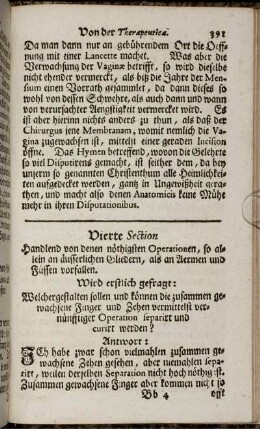 Von der Therapeutica. 391
Da man dann nur an gebührendem Ort die Oeff-
nung mit einer Lancette machet. Was aber die
Verwachsung der Vaginæ betrifft, so wird dieselbe
nicht ehender vermerckt, als biß die Jahre der Men-
sium einen Vorrath gesammlet, da dann dieses so
wohl von dessen Schwehre, als auch dann und wann
von verursachter Aengstigkeit vermercket wird. Es
ist aber hierinn nichts anders zu thun, als daß der
Chirurgus jene Membranam, womit nemlich die Va-
gina zugewachsen ist, mittelst einer geraden Incision
öffne. Das Hymen betreffend, wovon die Gelehrte
so viel Disputirens gemacht, ist seither dem, da bey
unserm so genannten Christenthum alle Heimlichkei-
ten aufgedecket werden, gantz in Ungewißheit gera-
then, und macht also denen Anatomicis keine Mühe
mehr in ihren Disputationibus.
Vierte Section
Handlend von denen nöthigsten Operationen, so al-
lein an äusserlichen Gliedern, als an Aermen und
Füssen vorfallen.
Wird erstlich gefragt:
Welchergestalten sollen und können die zusammen ge-
wachsene Finger und Zehen vermittelst ver-
nünfftiger Operation separirt und
curirt werden?
Antwort:
Ich habe zwar schon vielmahlen zusammen ge-
wachsene Zehen gesehen, aber niemahlen sepa-
rirt, weilen derselben Separation nicht hoch nöthig ist.
Zusammen gewachsene Finger aber kommen nicht so
Bb 4 offt